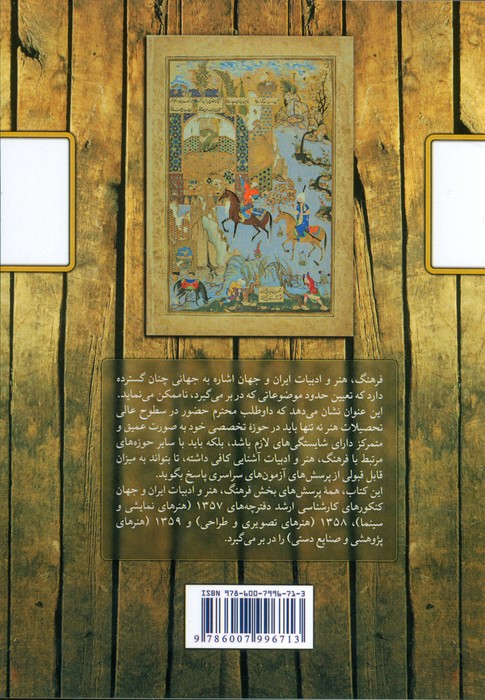 فرهنگ، هنر و ادبیات ایران و جهان اشاره به جهانی چنان گسترده
دارد که تعیین حدود موضوعاتی که در بر می‌گیرد، ناممکن می‌نماید.
این عنوان نشان می‌دهد که داوطلب محترم حضور در سطوح عالی
تحصیلات هنر نه تنها باید در حوزهٔ تخصصی خود به صورت عمیق و
متمرکز دارای شایستگی‌های لازم باشد، بلکه باید با سایر حوزه‌های
مرتبط با فرهنگ، هنر و ادبیات آشنایی کافی داشته، تا بتواند به میزان
قابل قبولی از پرسش‌های آزمون‌های سراسری پاسخ بگوید.
این کتاب، همهٔ پرسش‌های بخش فرهنگ، هنر و ادبیات ایران و جهان
کنکورهای کارشناسی ارشد دفترچه‌های ۱۳۵۷ (هنرهای نمایشی و
سینما)، ۱۳۵۸ (هنرهای تصویری و طراحی) و ۱۳۵۹ (هنرهای
پژوهشی و صنایع دستی) را در بر می‌گیرد.
ISBN 978-600-7996-71-3
9 786007 996713